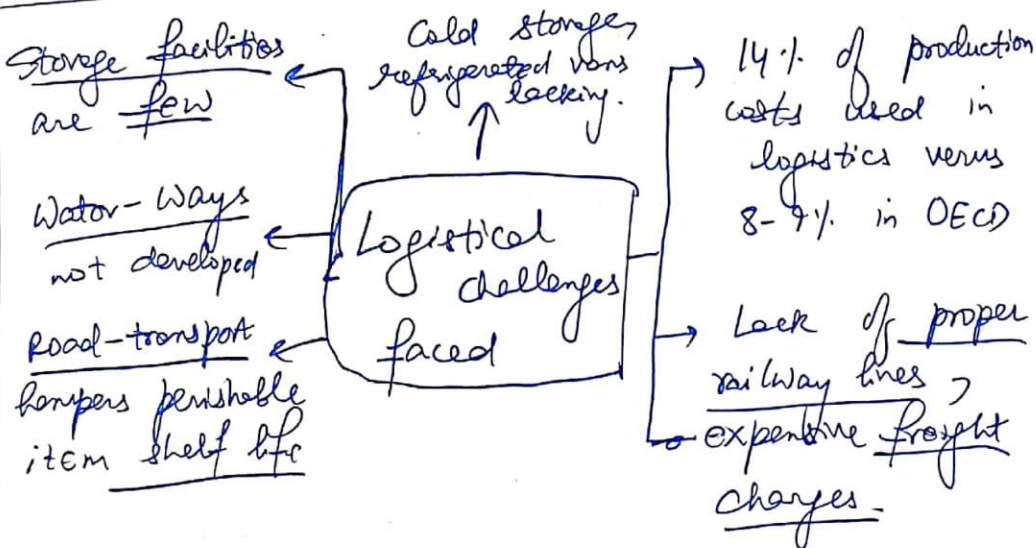 Storage facilities
are few
Water-Ways
not developed
Road-transport
hampers perishable
item shelf life
Cold storages,
refrigerated vans
lacking.
Logistical
challenges
faced
14% of production
costs used in
logistics verus
8-9% in OECD
Lack of proper
railway lines,
expensive freight
charges.